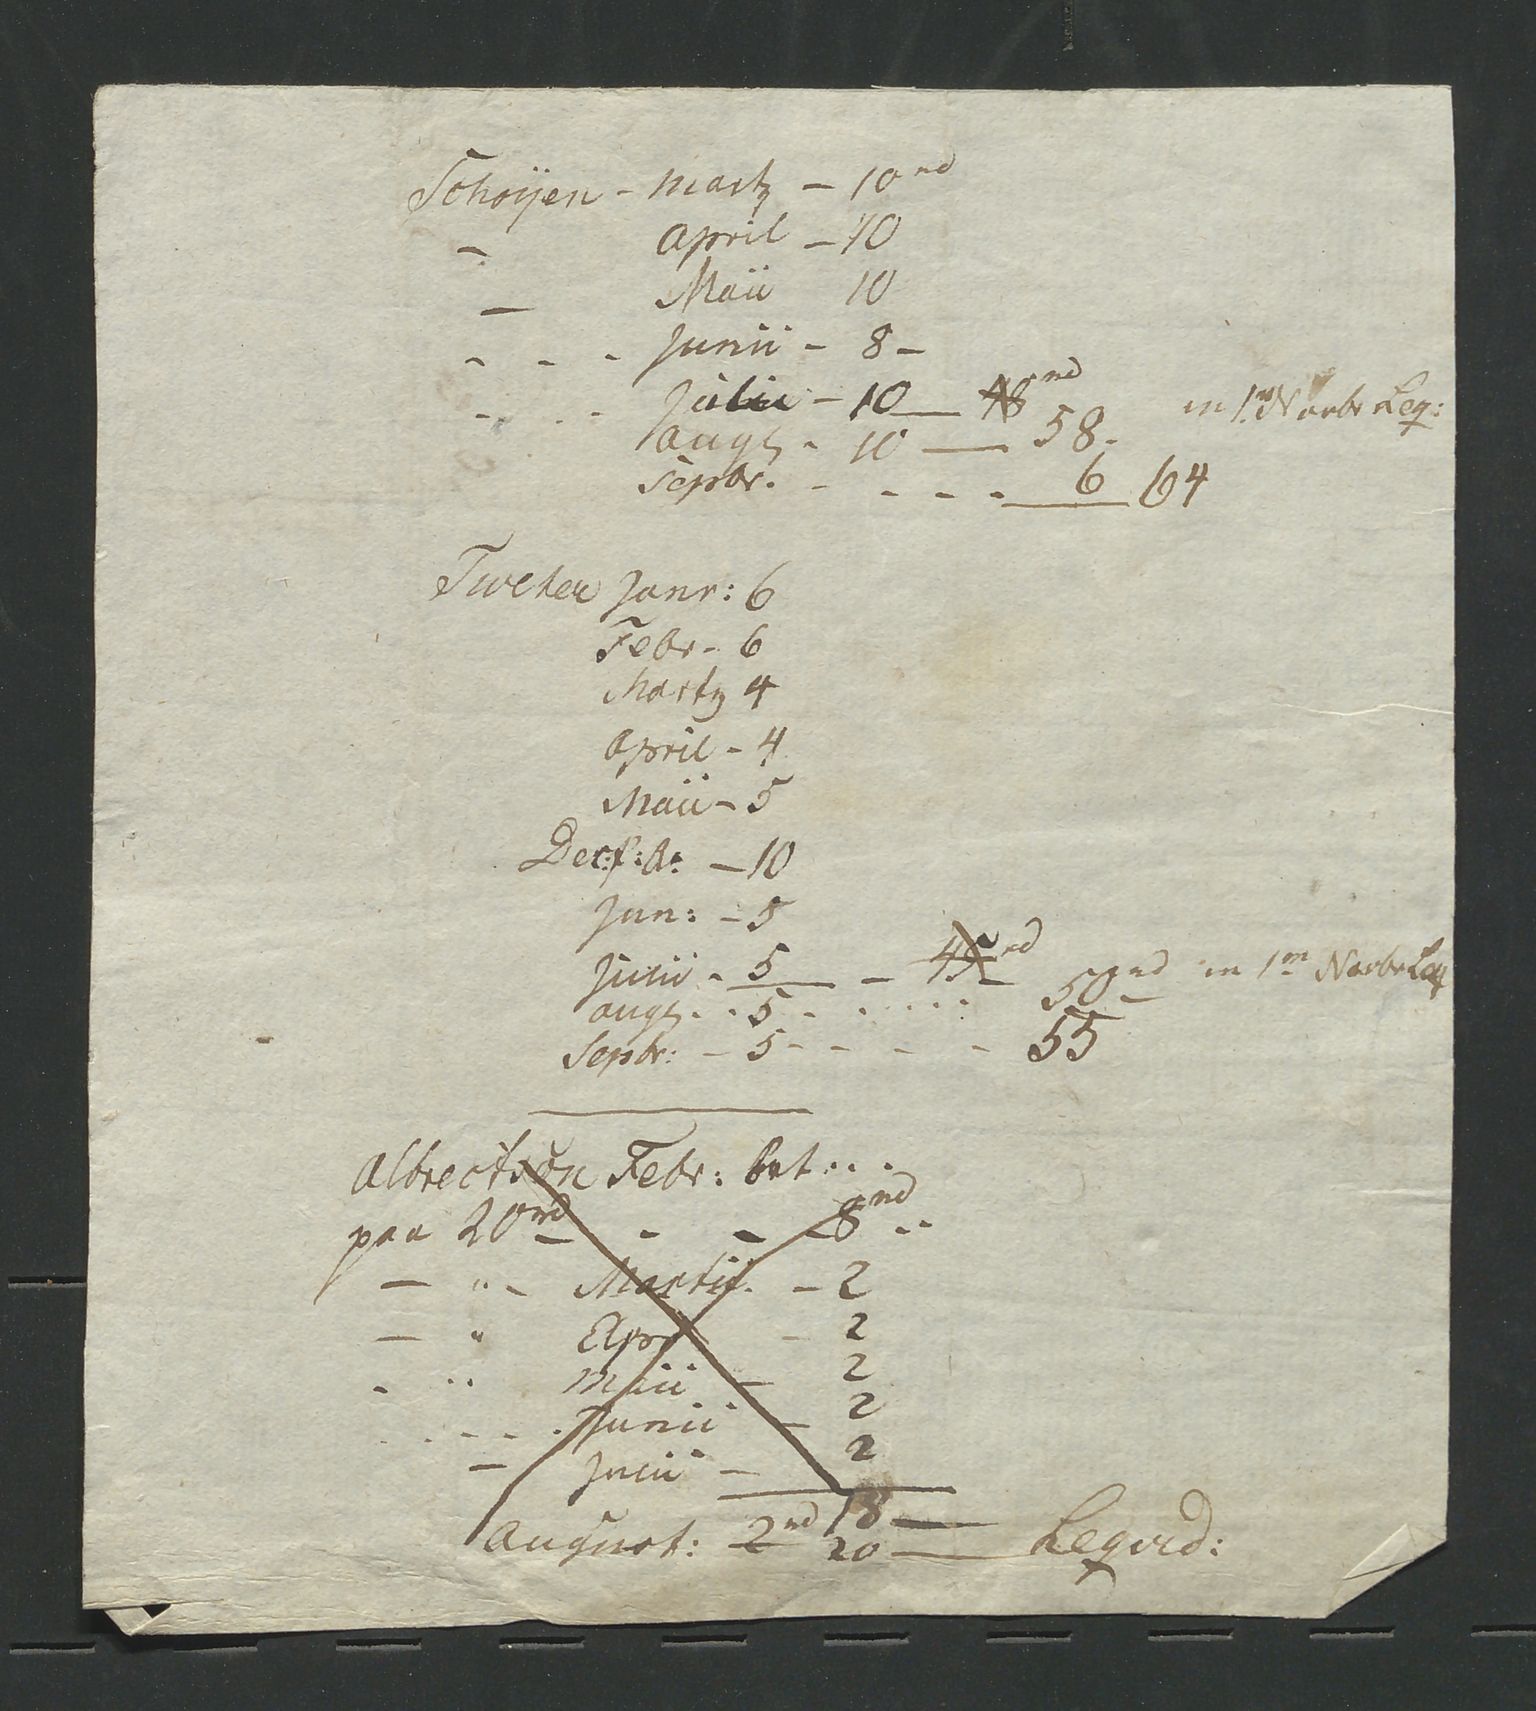 Schøÿen - Martz - 10 rd
- April - 10
- Maii 10
- - - Junii - 8 -
- - - Julii - 10 48 rd in 1n Novbr Leq:
augs - 10 58.
Sepbr. - - - - 6 64
Tweter Janr: 6
Febr - 6
Martz 4
April - 4
Maii - 5
- 10
Jun: - 5
Julii - 5 - 45 rd
augs . . 5 . . . . . . 50 rd in 1m Novbr Leq
Sepbr: - 5 - - - - 55
Albrectson Febr: bet . . .
paa 20 rd - - 8 rd . .
- " - Martii. - 2
- " Apr - 2
- " Maii - 2
. . - - - . Junii - 2
- Julii - 2
18
August: 2 rd 20 Leqvid: